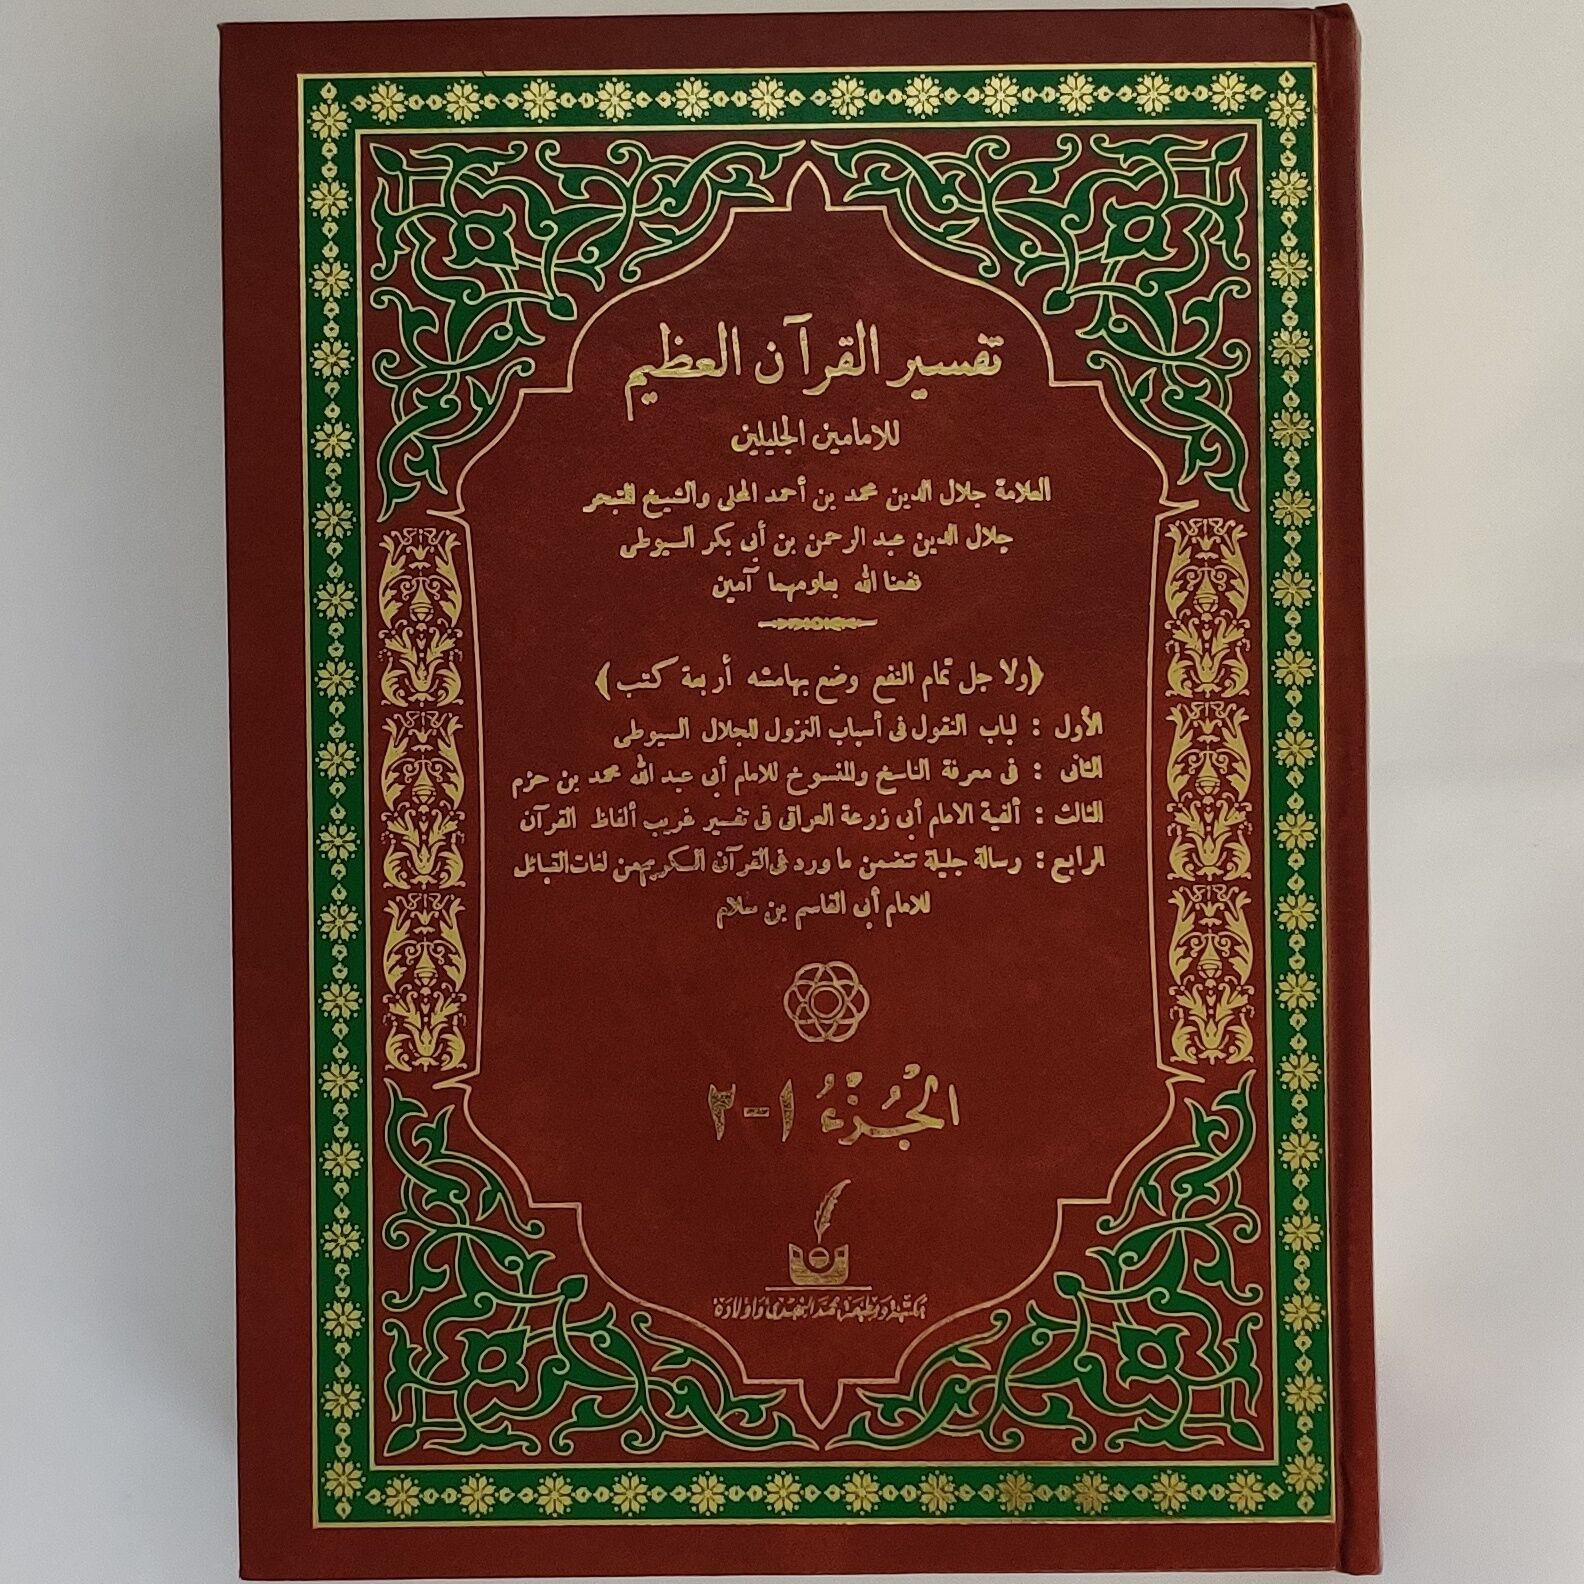 تفسير القرآن العظيم
للامامين الجليلين
العلامة جلال الدين محمد بن أحمد المحلى والشيخ المتبحر
جلال الدين عبد الرحمن بن أبى بكر السيوطى
نفعنا الله بعلومهما آمين
﴿ولاجل تمام النفع وضع بهامشه أربعة كتب﴾
الأول : لباب النقول فى أسباب النزول للجلال السيوطى
الثانى : فى معرفة الناسخ والمنسوخ للامام أبى عبد الله محمد بن حزم
الثالث : ألفية الامام أبى زرعة العراقى فى تفسير غريب ألفاظ القرآن
الرابع : رسالة جليلة تتضمن ما ورد فى القرآن الكريم من لغات القبائل
للامام أبى القاسم بن سلام
الجُزْءُ ١-٢
مكتبة ومطبعة محمد النهدى واولاده